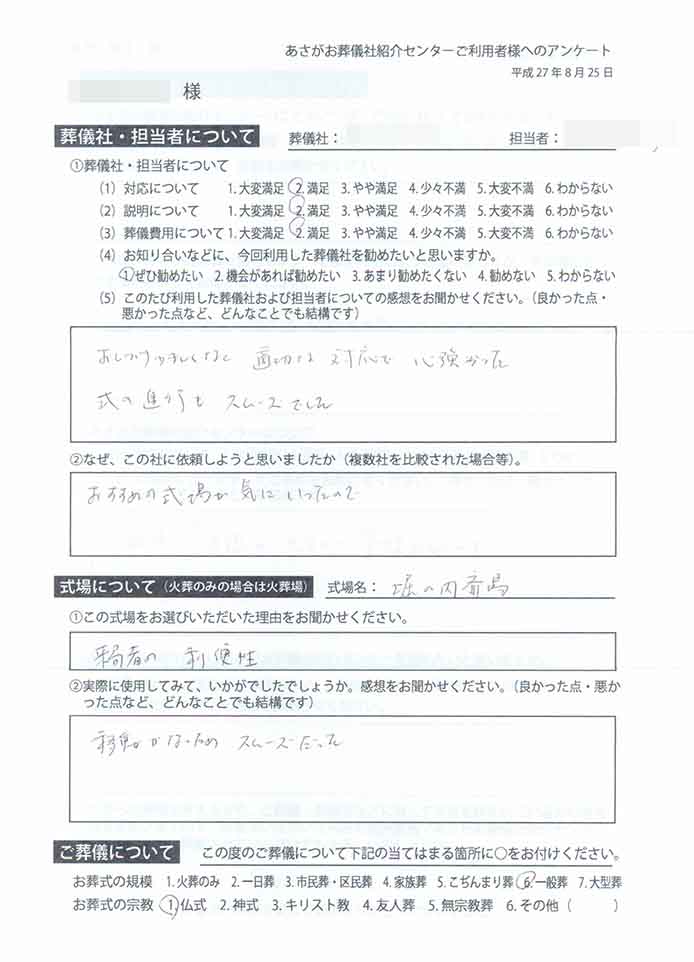 あさがお葬儀社紹介センターご利用者様へのアンケート
平成 27 年 8 月 25 日
様
葬儀社・担当者について 葬儀社: 担当者:
①葬儀社・担当者について
(1) 対応について 1. 大変満足 2. 満足 3. やや満足 4. 少々不満 5. 大変不満 6. わからない
(2) 説明について 1. 大変満足 2. 満足 3. やや満足 4. 少々不満 5. 大変不満 6. わからない
(3) 葬儀費用について 1. 大変満足 2. 満足 3. やや満足 4. 少々不満 5. 大変不満 6. わからない
(4) お知り合いなどに、今回利用した葬儀社を勧めたいと思いますか。
1. ぜひ勧めたい 2. 機会があれば勧めたい 3. あまり勧めたくない 4. 勧めない 5. わからない
(5) このたび利用した葬儀社および担当者についての感想をお聞かせください。(良かった点・
悪かった点など、どんなことでも結構です)
おしつけがましくなく 適切な 対応で 心強かった
式の進行も スムーズでした
②なぜ、この社に依頼しようと思いましたか(複数社を比較された場合等)。
おすすめの式場が気にいったので
式場について(火葬のみの場合は火葬場) 式場名: 堀の内斎場
①この式場をお選びいただいた理由をお聞かせください。
利便性
②実際に使用してみて、いかがでしたでしょうか。感想をお聞かせください。(良かった点・悪か
った点など、どんなことでも結構です)
移動がないため スムーズだった
ご葬儀について この度のご葬儀について下記の当てはまる箇所に○をお付けください。
お葬式の規模 1. 火葬のみ 2. 一日葬 3. 市民葬・区民葬 4. 家族葬 5. こぢんまり葬 6. 一般葬 7. 大型葬
お葬式の宗教 1. 仏式 2. 神式 3. キリスト教 4. 友人葬 5. 無宗教葬 6. その他( )